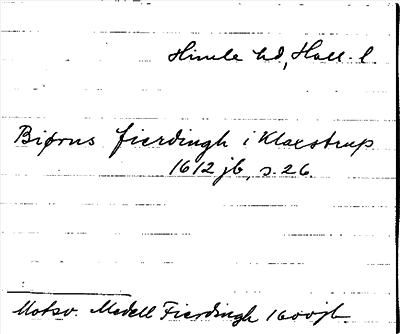 Himle hd, Hall. l.
Biørns fierdingh i Klaxstrup
1612 jb, s. 26.
Motsv. Medell Fierdingh 1600 jb